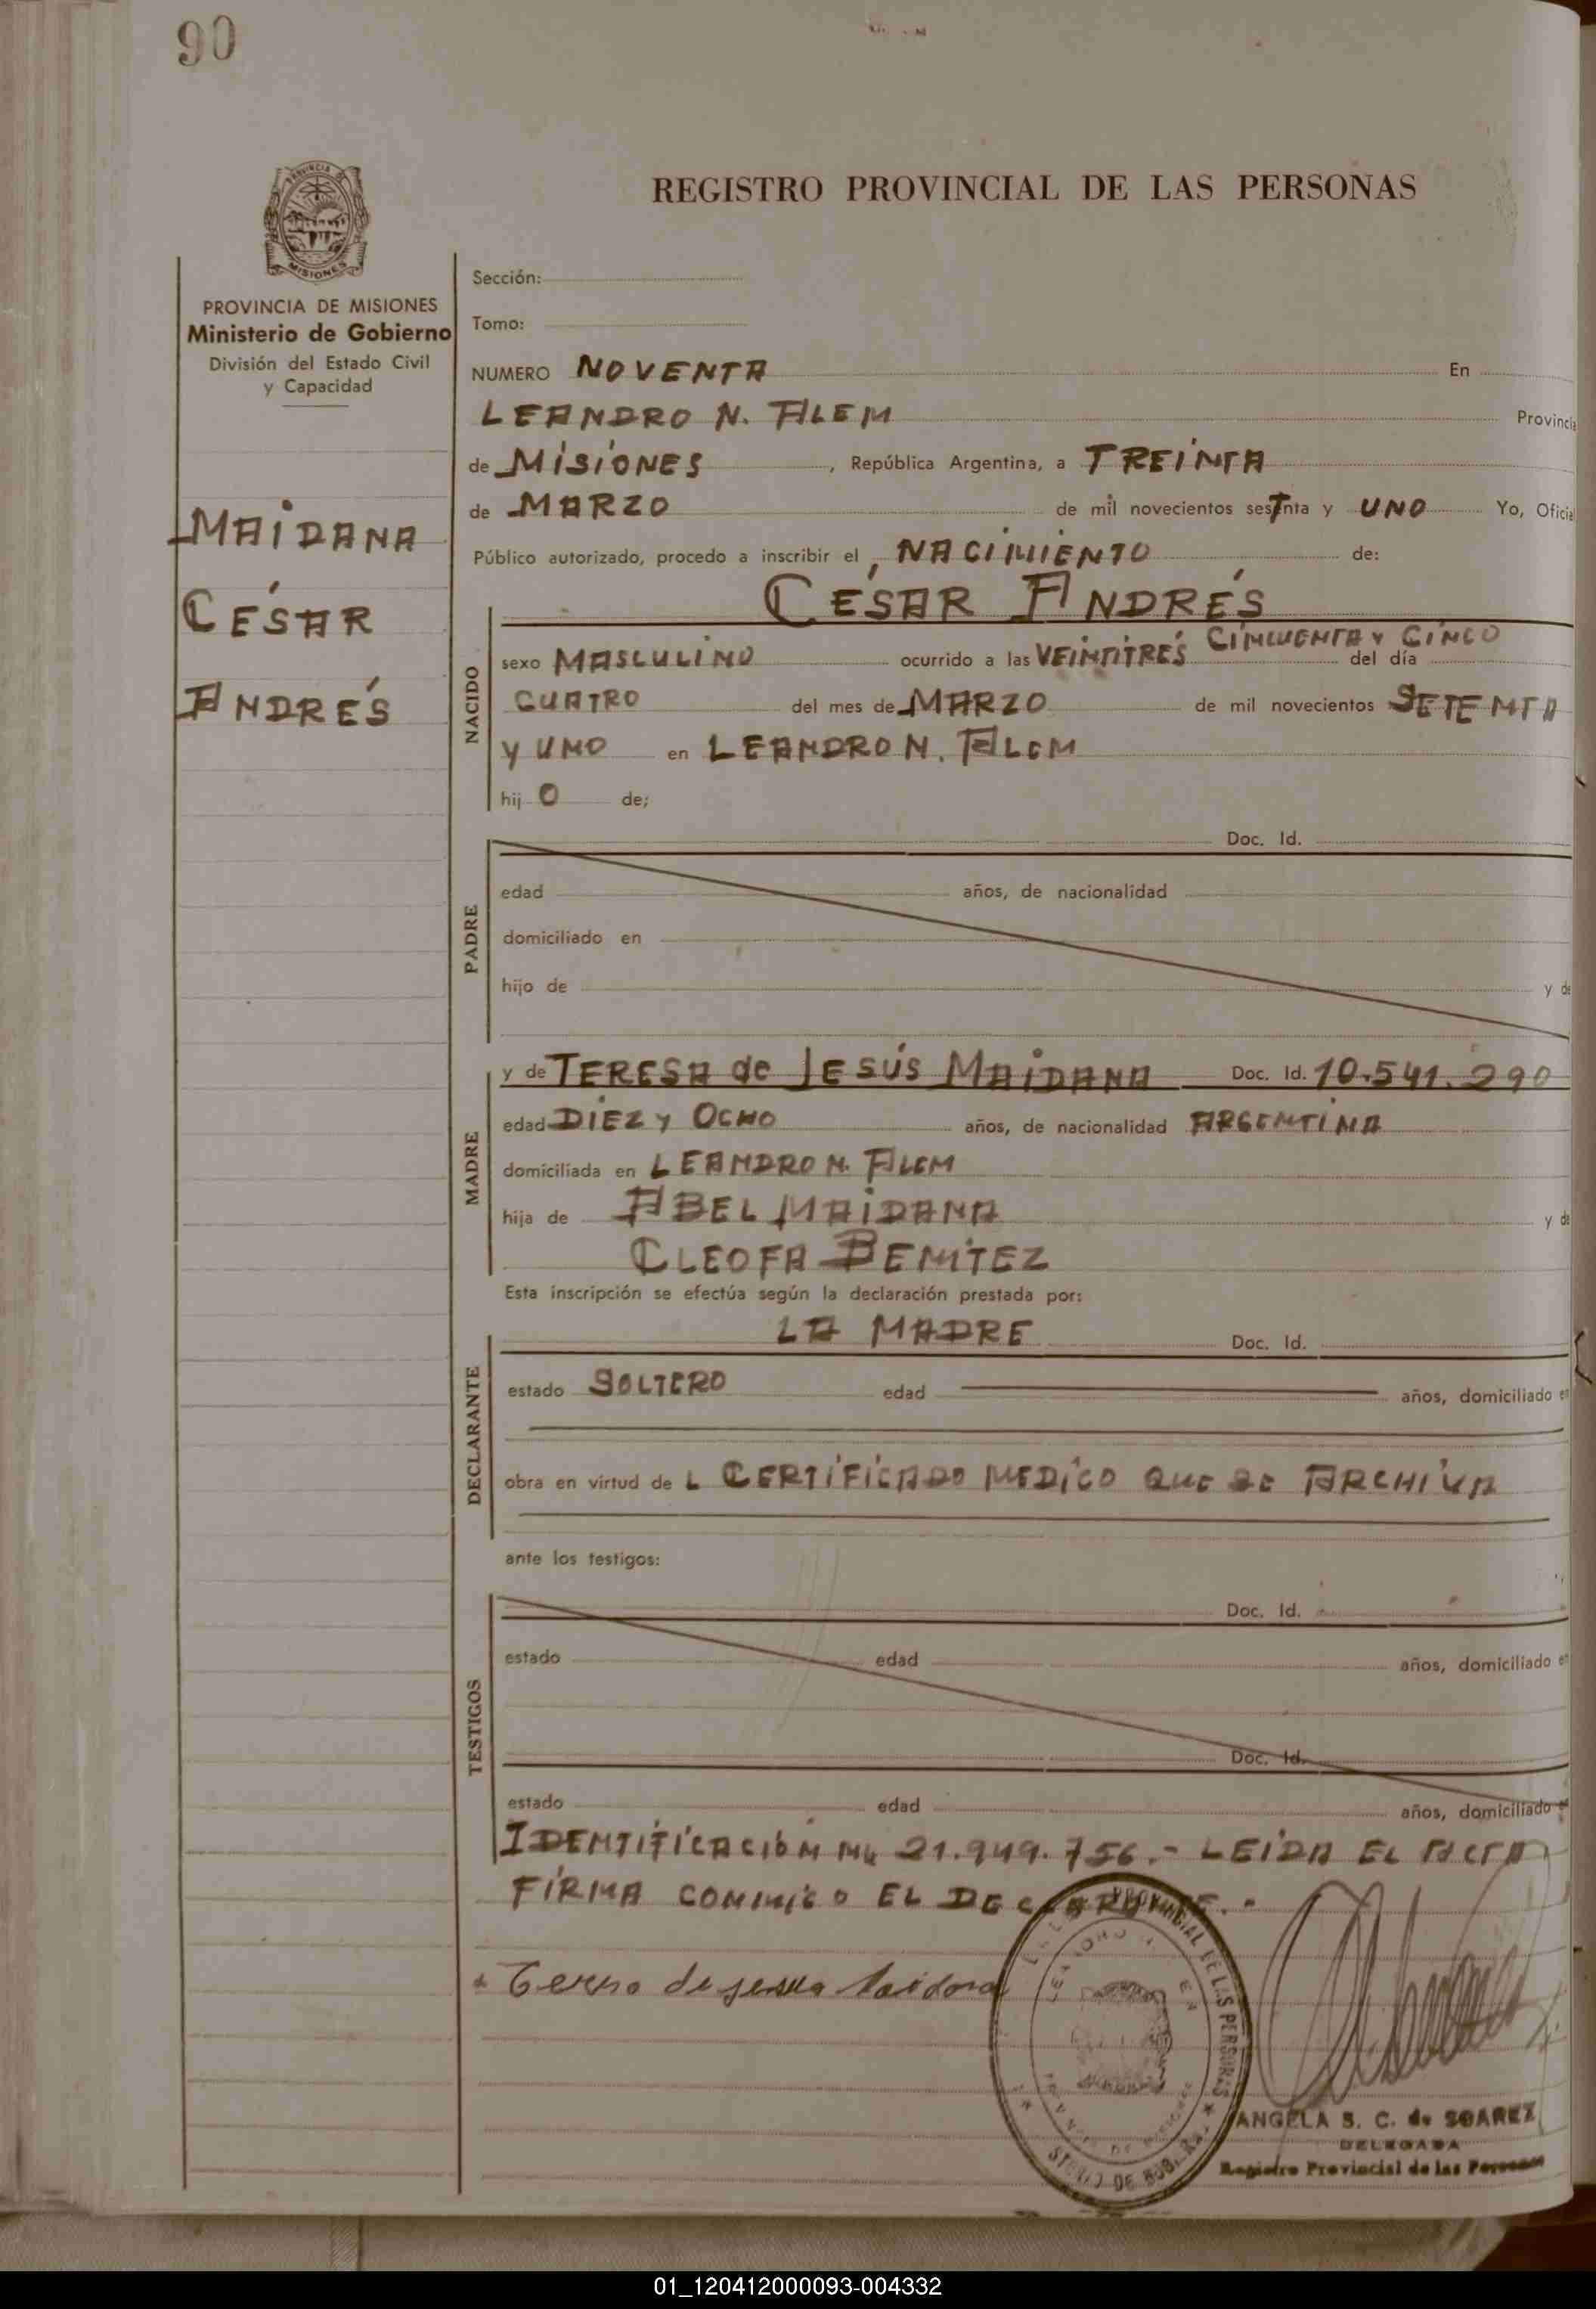 90
REGISTRO PROVINCIAL DE LAS PERSONAS
MISIONES
PROVINCIA DE MISIONES
Ministerio de Gobierno
División del Estado Civil
y Capacidad
MAIDANA
CÉSAR
ANDRÉS
Sección:
Tomo:
NUMERO NOVENTA En
LEANDRO N. ALEM Provincia
de MISIONES, República Argentina, a TREINTA
de MARZO de mil novecientos sesTnta y UNO Yo, Oficial
Público autorizado, procedo a inscribir el NACIMIENTO de:
CÉSAR ANDRÉS
NACIDO
sexo MASCULINO ocurrido a las VEINTITRÉS CINCUENTA Y CINCO del día
CUATRO del mes de MARZO de mil novecientos SETENTA
Y UNO en LEANDRO N. ALEM
hij O de;
PADRE
Doc. Id.
edad años, de nacionalidad
domiciliado en
hijo de y de
MADRE
y de TERESA de JESÚS MAIDANA Doc. Id. 10.541.290
edad DIEZ Y OCHO años, de nacionalidad ARGENTINA
domiciliada en LEANDRO N. ALEM
hija de ABEL MAIDANA y de
CLEOFA BENITEZ
Esta inscripción se efectúa según la declaración prestada por:
DECLARANTE
LA MADRE Doc. Id.
estado SOLTERO edad años, domiciliado en
obra en virtud de L CERTIFICADO MEDICO QUE SE ARCHIVA
ante los testigos:
TESTIGOS
Doc. Id.
estado edad años, domiciliado en
Doc. Id.
estado edad años, domiciliado
IDENTIFICACIÓN 21.949.756.- LEIDA EL ACTA
FIRMA CONMIGO EL DECLARANTE.-
de Jesus Maidana
PROVINCIAL DE LAS PERSONAS
ANGELA S. C. de SOAREZ
DELEGADA
Registro Provincial de las Personas
01_120412000093-004332